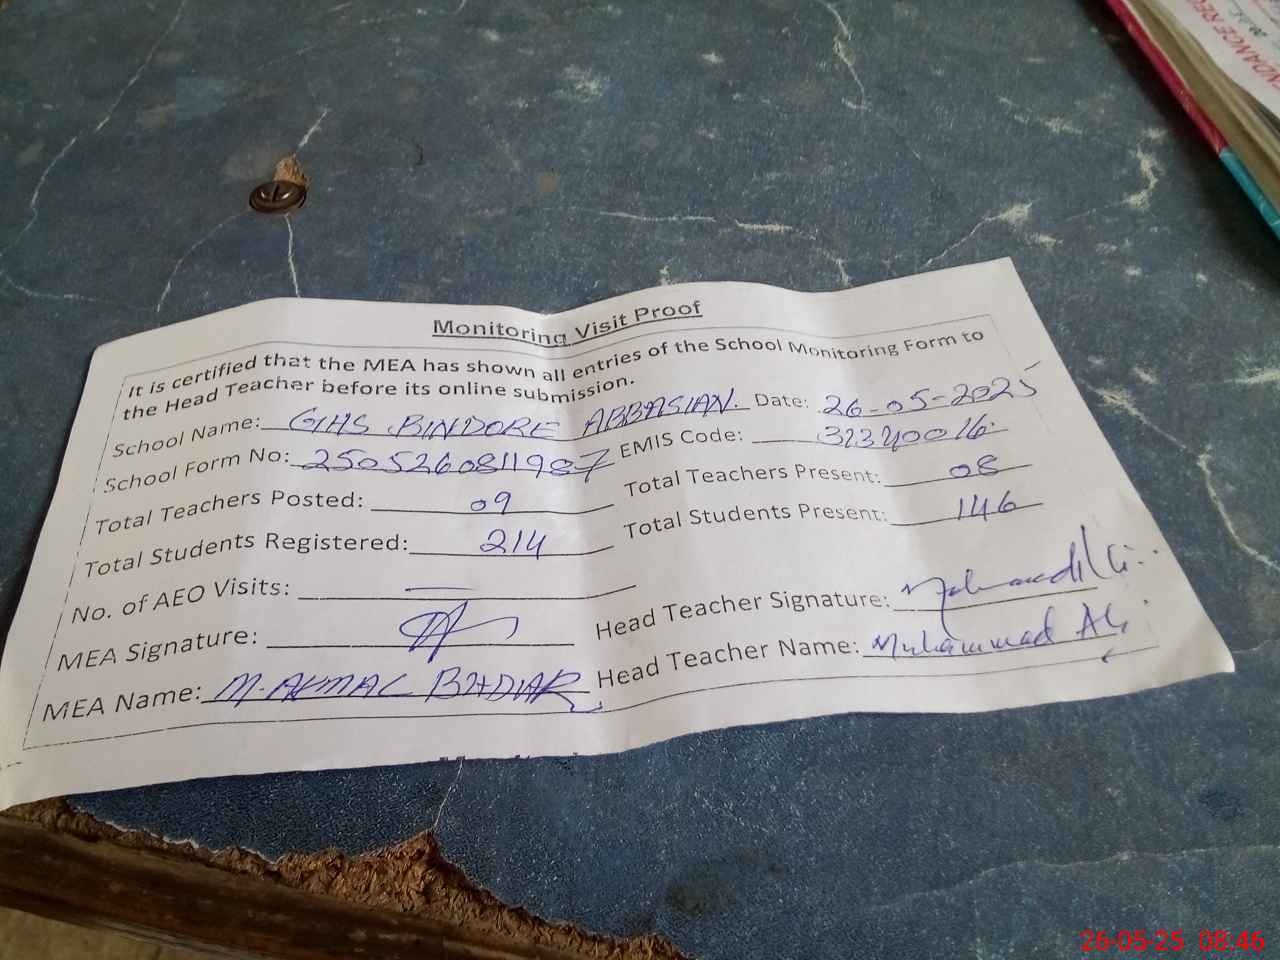 NDANCE REG
Monitoring Visit Proof
It is certified that the MEA has shown all entries of the School Monitoring Form to
the Head Teacher before its online submission.
School Name: GHS BINDORE ABBASIAN. Date: 26-05-2025
School Form No: 2505260811987 EMIS Code: 31340016
Total Teachers Posted: 09 Total Teachers Present: 08
Total Students Registered: 214 Total Students Present: 146
No. of AEO Visits: —
MEA Signature: Head Teacher Signature:
MEA Name: M. AKMAL Head Teacher Name: Muhammad Ali
26-05-25 08:46